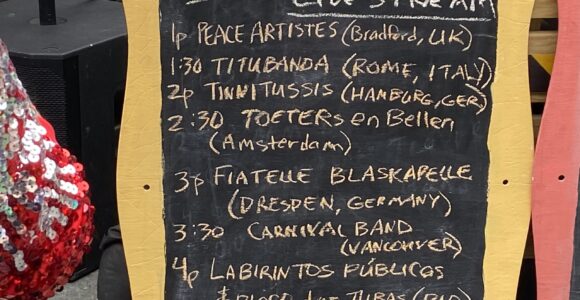 LIVE STREAM
1p PEACE ARTISTES (Bradford, UK)
1:30 TITUBANDA (ROME, ITALY)
2p TINNITUSSIS (HAMBURG, GER)
2:30 TOETERS en Bellen
(Amsterdam)
3p FIATELLE BLASKAPELLE
(DRESDEN, GERMANY)
3:30 CARNIVAL BAND
(VANCOUVER)
4p LABIRINTOS PÚBLICOS